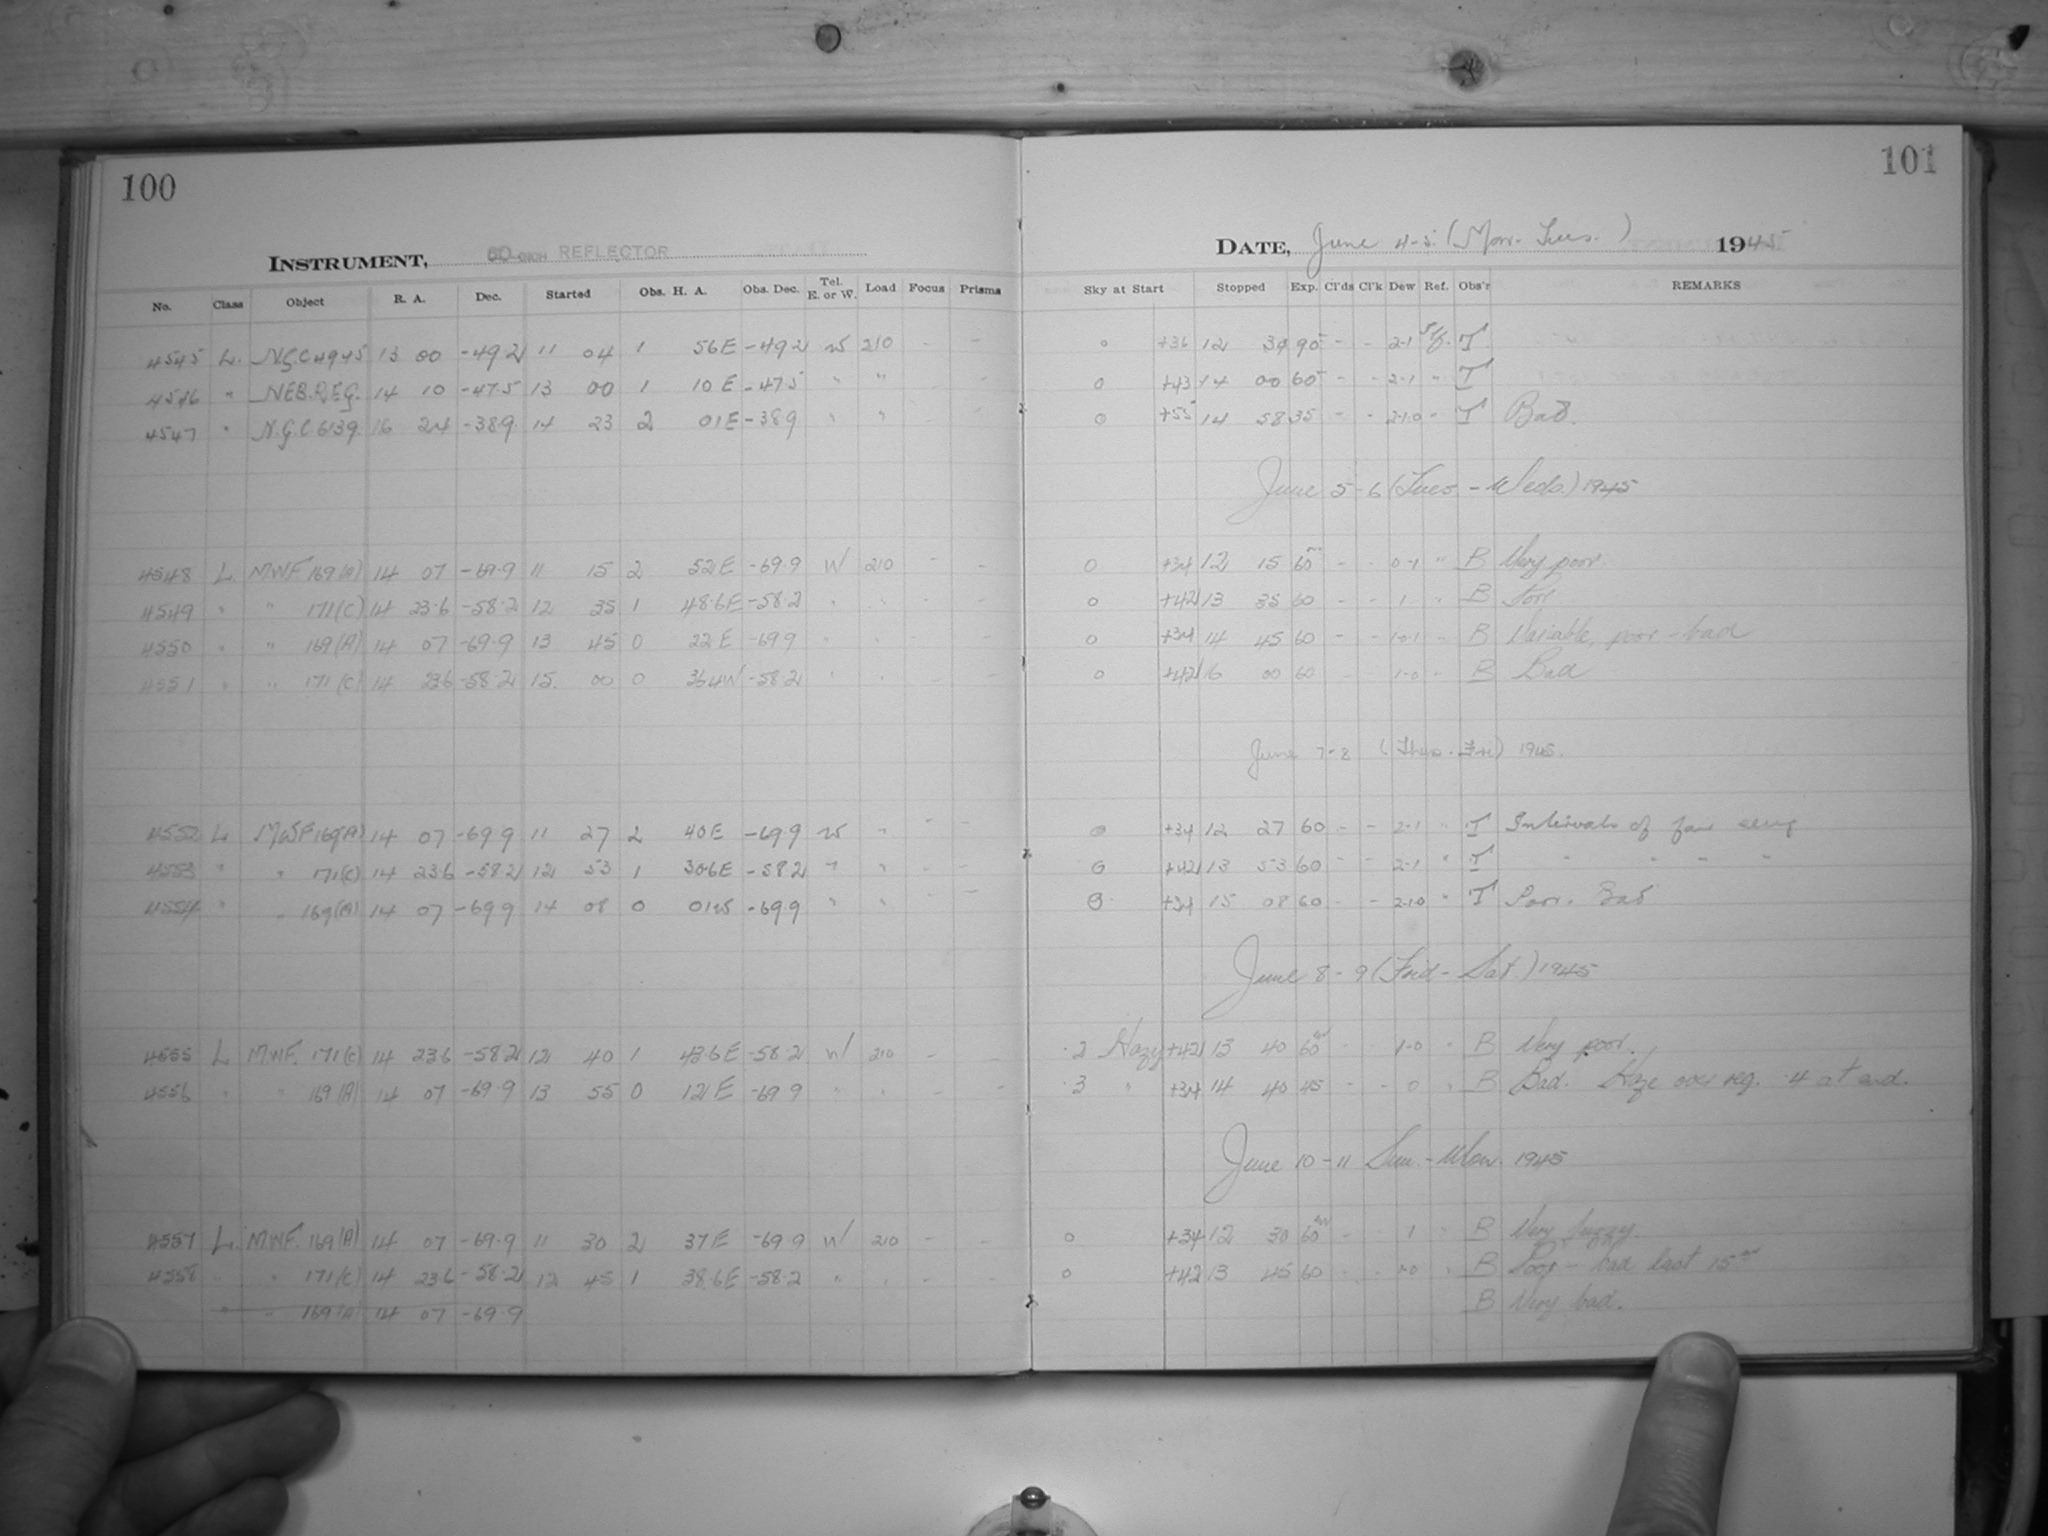 100
101
INSTRUMENT, 60 INCH REFLECTOR
DATE, June 4-5. (Mon. Tues.) 1945
No. Class Object R. A. Dec. Started Obs. H. A. Obs. Dec. Tel. E. or W. Load Focus Prisms Sky at Start Stopped Exp. Cl'ds Cl'k Dew Ref. Obs'r REMARKS
4545 L. N.G.C 4945 13 00 -49.2 11 04 1 56 E -49.2 W 210 - - 0 +36 12 34 90 - - 2-1 T
4546 " NEB.REG. 14 10 -47.5 13 00 1 10 E -47.5 " " - - 0 +43 14 00 60 - - 2-1 " T
4547 " N.G.C 6139. 16 24 -38.9 14 23 2 01 E -38.9 " " - - 0 +55 14 58 35 - - 2-1.0 " T Bad.
June 5-6 (Tues - Weds.) 1945
4548 L. MWF 169(A) 14 07 -69.9 11 15 2 52 E -69.9 W 210 - - 0 +34 12 15 60 - - 0-1 " B Very poor.
4549 " " 171(C) 14 23.6 -58.2 12 35 1 48.6E -58.2 " " - - 0 +42 13 35 60 - - 1 " B
4550 " " 169(A) 14 07 -69.9 13 45 0 22 E -69.9 " " - - 0 +34 14 45 60 - - " B Variable, poor - bad
4551 " " 171(C) 14 23.6 -58.2 15 00 0 36.4W -58.2 " " - - 0 +42 16 00 60 - - 1-0 " B Bad
June 7-8 (Thurs. Fri) 1945.
4552 L MWF 169(A) 14 07 -69.9 11 27 2 40 E -69.9 W " - - 0 +34 12 27 60 - - 2-1 " T Intervals of fair seeing
4553 " " 171(C) 14 23.6 -58.2 12 53 1 30.6E -58.2 " " - - 0 +42 13 53 60 - - 2-1 " T " " " "
4554 " " 169(A) 14 07 -69.9 14 08 0 01W -69.9 " " - - 0 +34 15 08 60 - - 2-1.0 " T Poor. Bad
June 8-9 (Frid - Sat) 1945
4555 L M.W.F. 171(C) 14 23.6 -58.2 12 40 1 43.6E -58.2 W 210 - - .2 Hazy +42 13 40 60 - - 1-0 " B Very poor.
4556 " " 169(A) 14 07 -69.9 13 55 0 12 E -69.9 " " - - .3 " +34 14 40 45 - - 0 " B Bad. Haze over reg. .4 at end.
June 10-11 Sun. - Mon. 1945
4557 L. M.W.F. 169(A) 14 07 -69.9 11 30 2 37 E -69.9 W 210 - - 0 +34 12 30 60 - - 1 " B Very fuzzy.
4558 " " 171(C) 14 23.6 -58.2 12 45 1 38.6E -58.2 " " - - 0 +42 13 45 60 - - " B Poor - bad last 15m
" " 169(A) 14 07 -69.9 B Very bad.